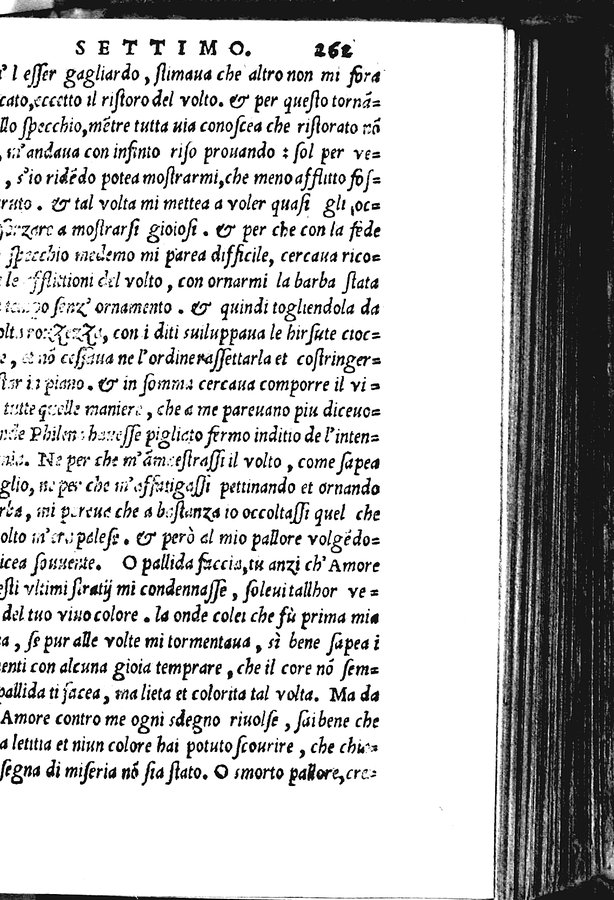 SETTIMO. 262
l'esser gagliardo, stimaua che altro non mi fora
cato, eccetto il ristoro del volto. & per questo tornā=
llo specchio, mētre tutta uia conoscea che ristorato nō
, m'andaua con infinto riso prouando : sol per ve=
, s'io ridēdo potea mostrarmi, che meno afflitto fos=
& tal volta mi mettea a voler quasi gli oc=
forzare a mostrarsi gioiosi. & per che con la fede
specchio medemo mi parea difficile, cercaua rico=
le afflittioni del volto, con ornarmi la barba stata
tempo senz' ornamento. & quindi togliendola da
rozzezza, con i diti suiluppaua le hirsute cioc=
, et nō cessaua ne l'ordine rassettarla et costringer=
star in piano. & in somma cercaua comporre il vi=
tutte quelle maniere, che a me pareuano piu diceuo=
hauesse pigliato fermo inditio de l'inten=
Ne per che m'āmaestrassi il volto, come sapea
glio, ne per che m'affatigassi pettinando et ornando
rba, mi pareua che a bastanza io occoltassi quel che
olto m'era pelese. & però al mio pallore volgēdo=
icea souuente. O pallida faccia, tu anzi ch'Amore
esti vltimi stratij mi condennasse, soleui tallhor ve=
del tuo viuo colore. la onde colei che fù prima mia
a, se pur alle volte mi tormentaua, sì bene sapea i
menti con alcuna gioia temprare, che il core nō sem=
pallida ti facea, ma lieta et colorita tal volta. Ma da
Amore contro me ogni sdegno riuolse, sai bene che
a letitia et niun colore hai potuto scourire, che chia=
segna di miseria nō sia stato. O smorto pallore, cre=